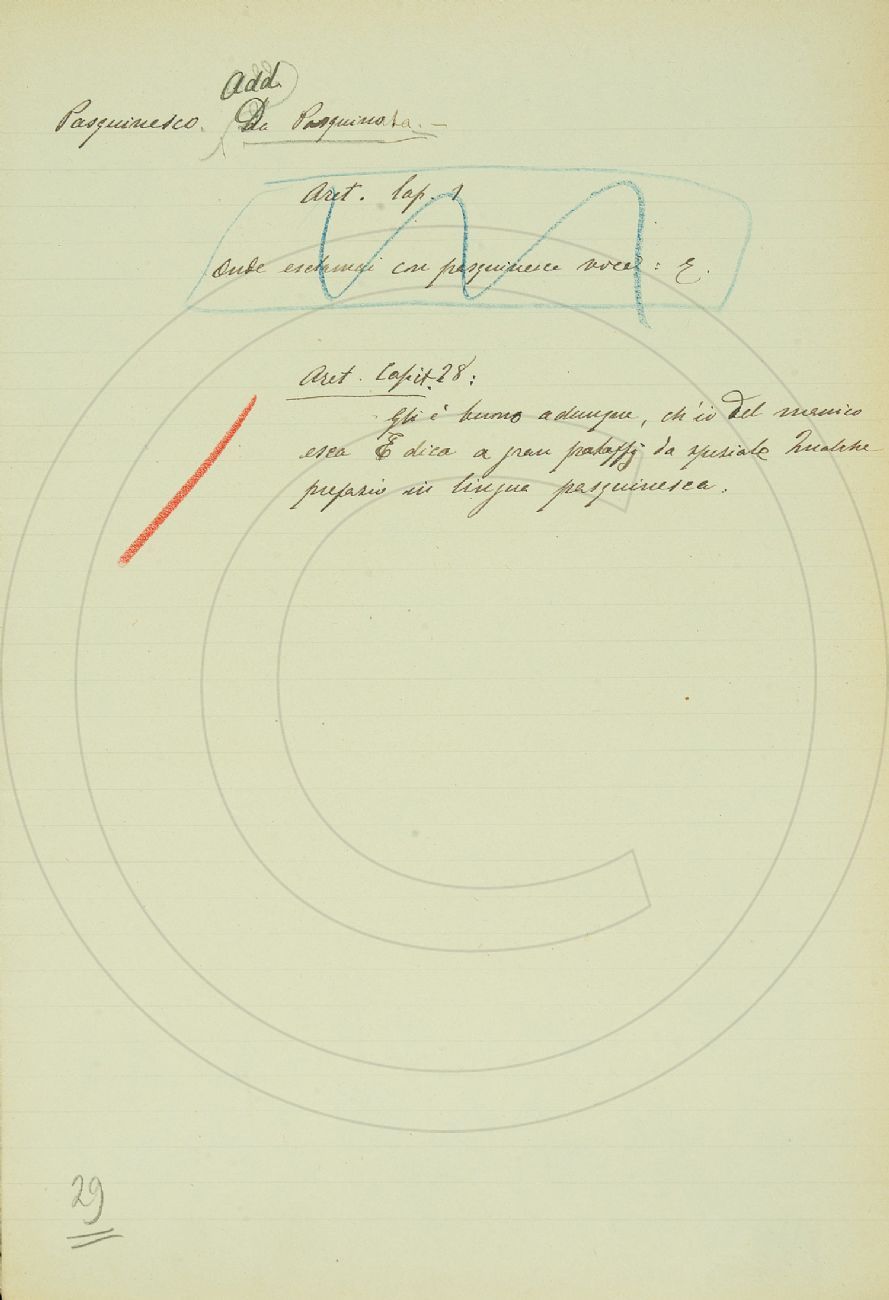 Add.
Pasquinesco. Da Pasquinata. —
Aret. Cap. 1
Onde esclamai con pasquinesca voce: E.
Aret. Capit. 28:
Gli è buono adunque, ch'io del manico
esca E dica a gran pataffj da speziale Qualche
prefazio in lingua pasquinesca.
29